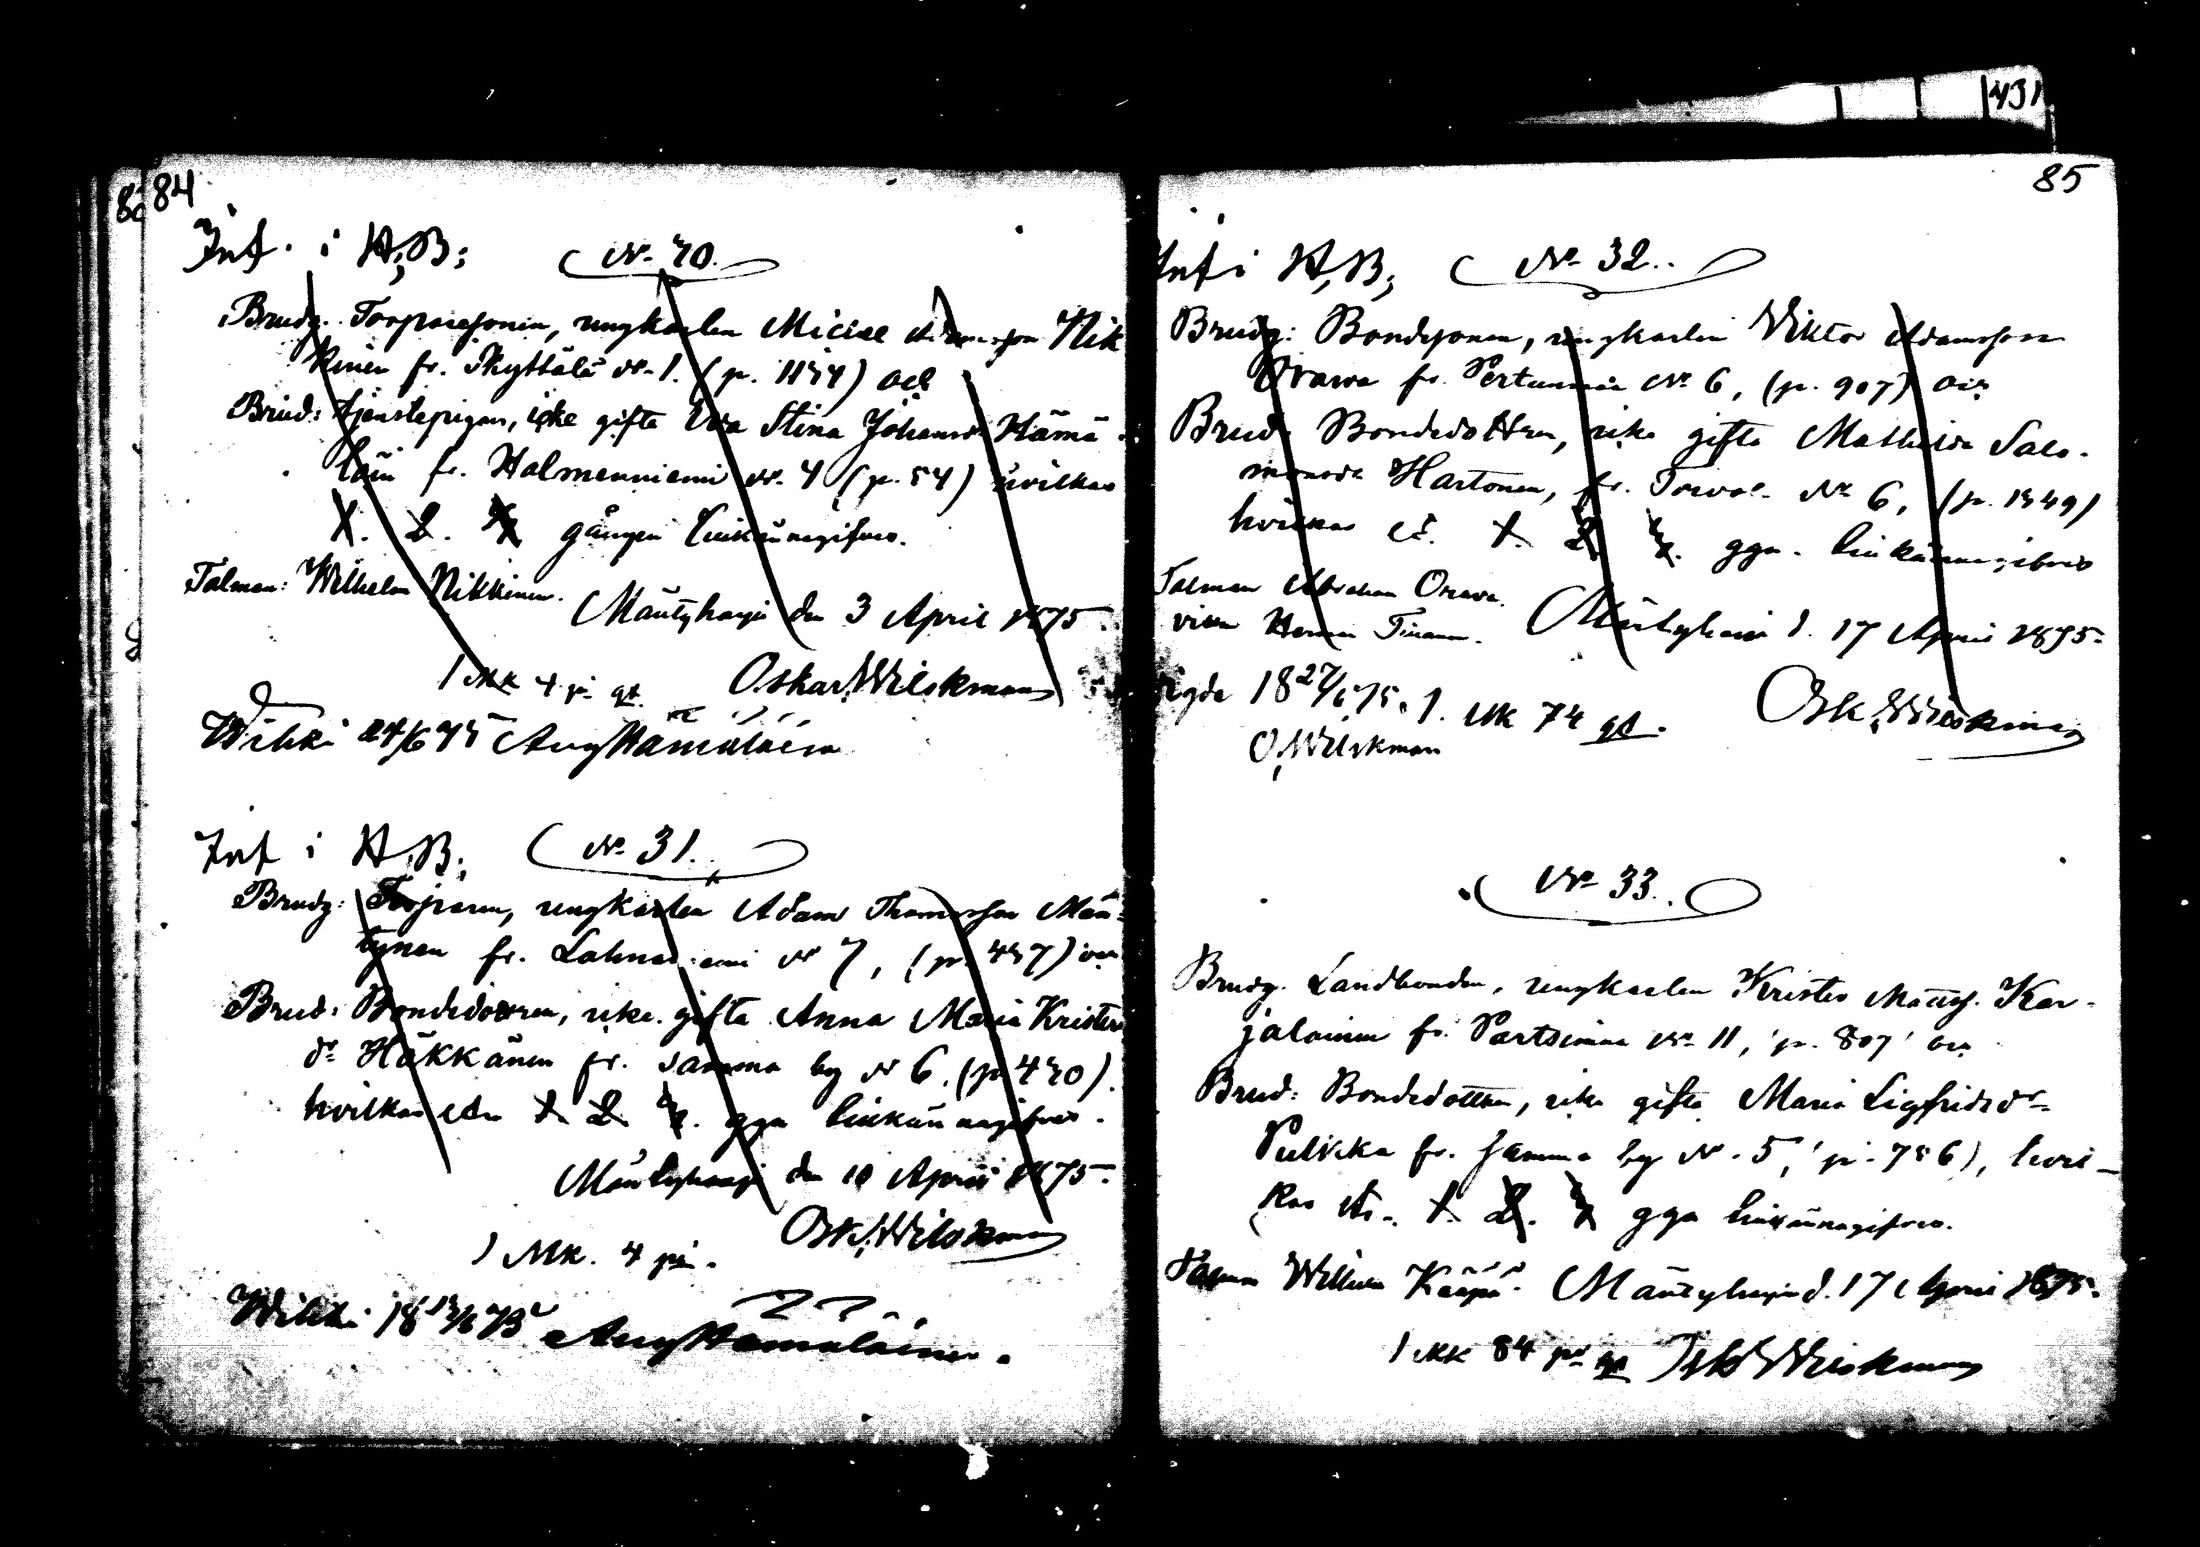 84
Inf. i H,B;
No 30.
Brudg. Torparesonen, ungkarlen Micael Adamsson Nik
kinen fr. Pyttälä No 1. (p. 1134) och
Brud: tjenstepigan, icke gifta Eva Stina Johansdr Hämä
läin fr. Halmenniemi No 4 (p. 54) hvilkas
1. 2. 3 gången hinkännagifves.
Talman: Wilhelm Nikkinen.
Mäntyharju den 3 April 1875
1 Mk 4 pi gd. Oskar Wilskman
Wihki 24/6 75 Aug Hämäläinen
Inf i H,B;
No 31.
Brudg: Torparen, ungkarlen Adam Thomasson Män-
tynen fr. Lahnaniemi No 7, (p. 437) och
Brud: Bondedottren, icke gifta Anna Maria Kristers
dr Häkkänen fr. samma by No 6, (p 430).
hvilkas 1. 2. 3. gga hinkännagifves.
Mäntyharju den 10 April 1875.
1 Mk. 4 pi. Osk. Wilskman
Wihki 18 /6 75 Aug Hämäläinen.
431
85
Inf i H,B;
No 32.
Brudg: Bondesonen, ungkarlen Viktor Adamsson
Orawa fr. Pertunmaa No 6, (p. 907) och
Brud: Bondedottren, icke gifta Mathilda Salo-
monsdr Hartonen, fr. No 6, (p. 1349)
hvilkas 1. 2. 3. gga. hinkännagifves
Talman Abraham Orava.
Mäntyharju d. 17 April 1875.
Vigde 18 27/6 75. 1. Mk 74 gd.
O, Wilskman
Osk, Wilskman
No 33.
Brudg. Landbonden, ungkarlen Krister Mattss. Kar-
jalainen fr. Partsimaa No 11, (p. 807) och
Brud: Bondedottren, icke gifta Maria Sigfridsdr
Pulkka fr. samma by No. 5, (p. 786), hvil-
kas 1. 2. 3 gga hinkännagifves.
Talman Wilhelm Kääpä. Mäntyharju d. 17 April 1875.
1 Mk 84 pi gd Osk Wilskman